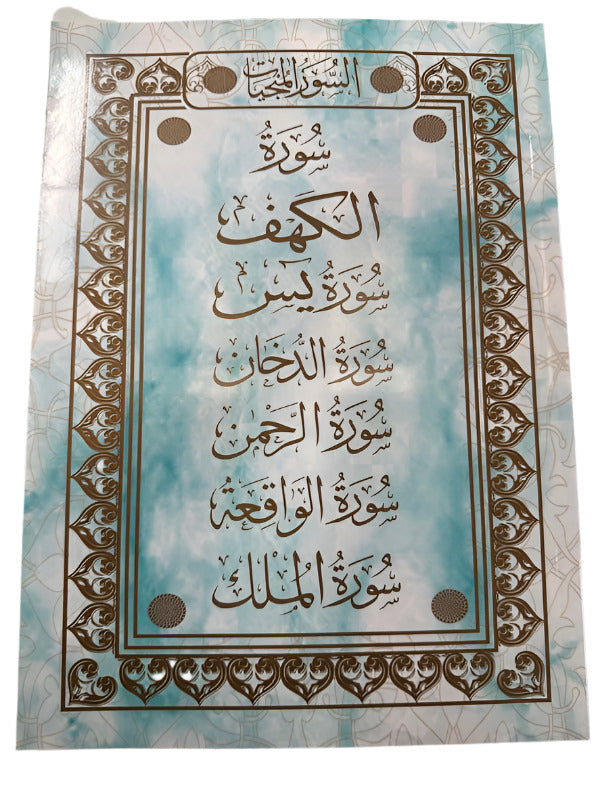 السُّوَرُ المُنْجِيَات
سُورَةُ
الكَهف
سُورَةُ يَس
سُورَةُ الدُّخَان
سُورَةُ الرَّحمن
سُورَةُ الوَاقِعَة
سُورَةُ المُلك